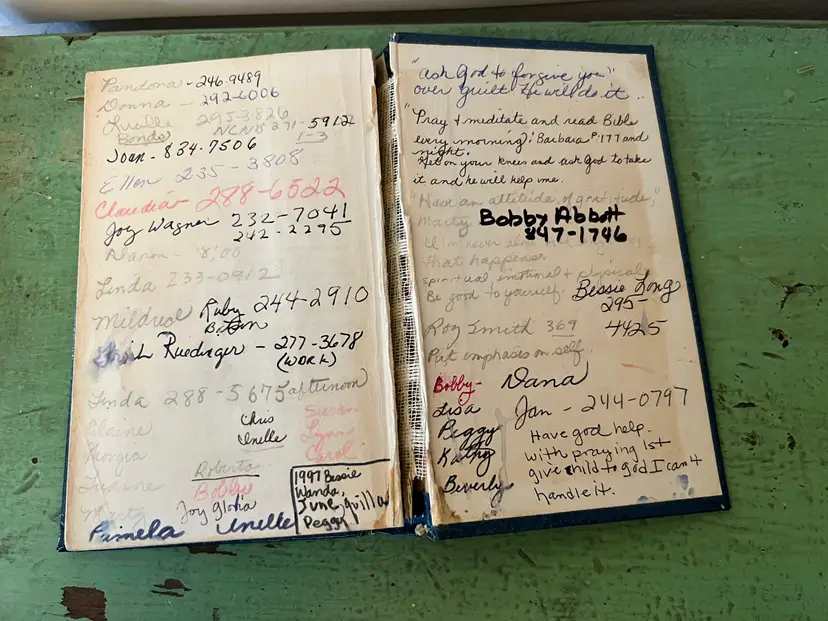 Pandora - 246-9489
Donna - 292-6006
Luelle 295-3826
Bonds NCNB 371-5912
1-3
Joan - 834-7506
Ellen 235-3808
Claudia 288-6522
Joy Wagner 232-7041
242-2295
Alanon - 8:00
Linda 233-0912
Mildred Ruby 244-2910
L Ruedinger - 277-3678
(WORK)
Linda 288-5675 afternoon
Elaine Chris Susan
Unelle Lynn
Georgia Carol
Roberta
Bobbie
Joy Gloria
Pamela Unelle
1997 Bessie
Wanda,
June, quilla
Peggy
"ask God to forgive you"
over guilt He will do it ..
"Pray & meditate and read Bible
every morning". Barbara P. 177 and
night.
Get on your knees and ask God to take
it and he will help me.
"Have an attitude of gratitude,"
Marty Bobby Abbott
847-1746
that happens.
spiritual, emotional & physical
Be good to yourself. Bessie Long
295-
4425
Roy Smith 369
Put emphasis on self.
Bobby - Dana
Lisa Jan - 244-0797
Peggy
Kathy
Beverly
Have god help.
with praying 1st
give child to god I can't
handle it.